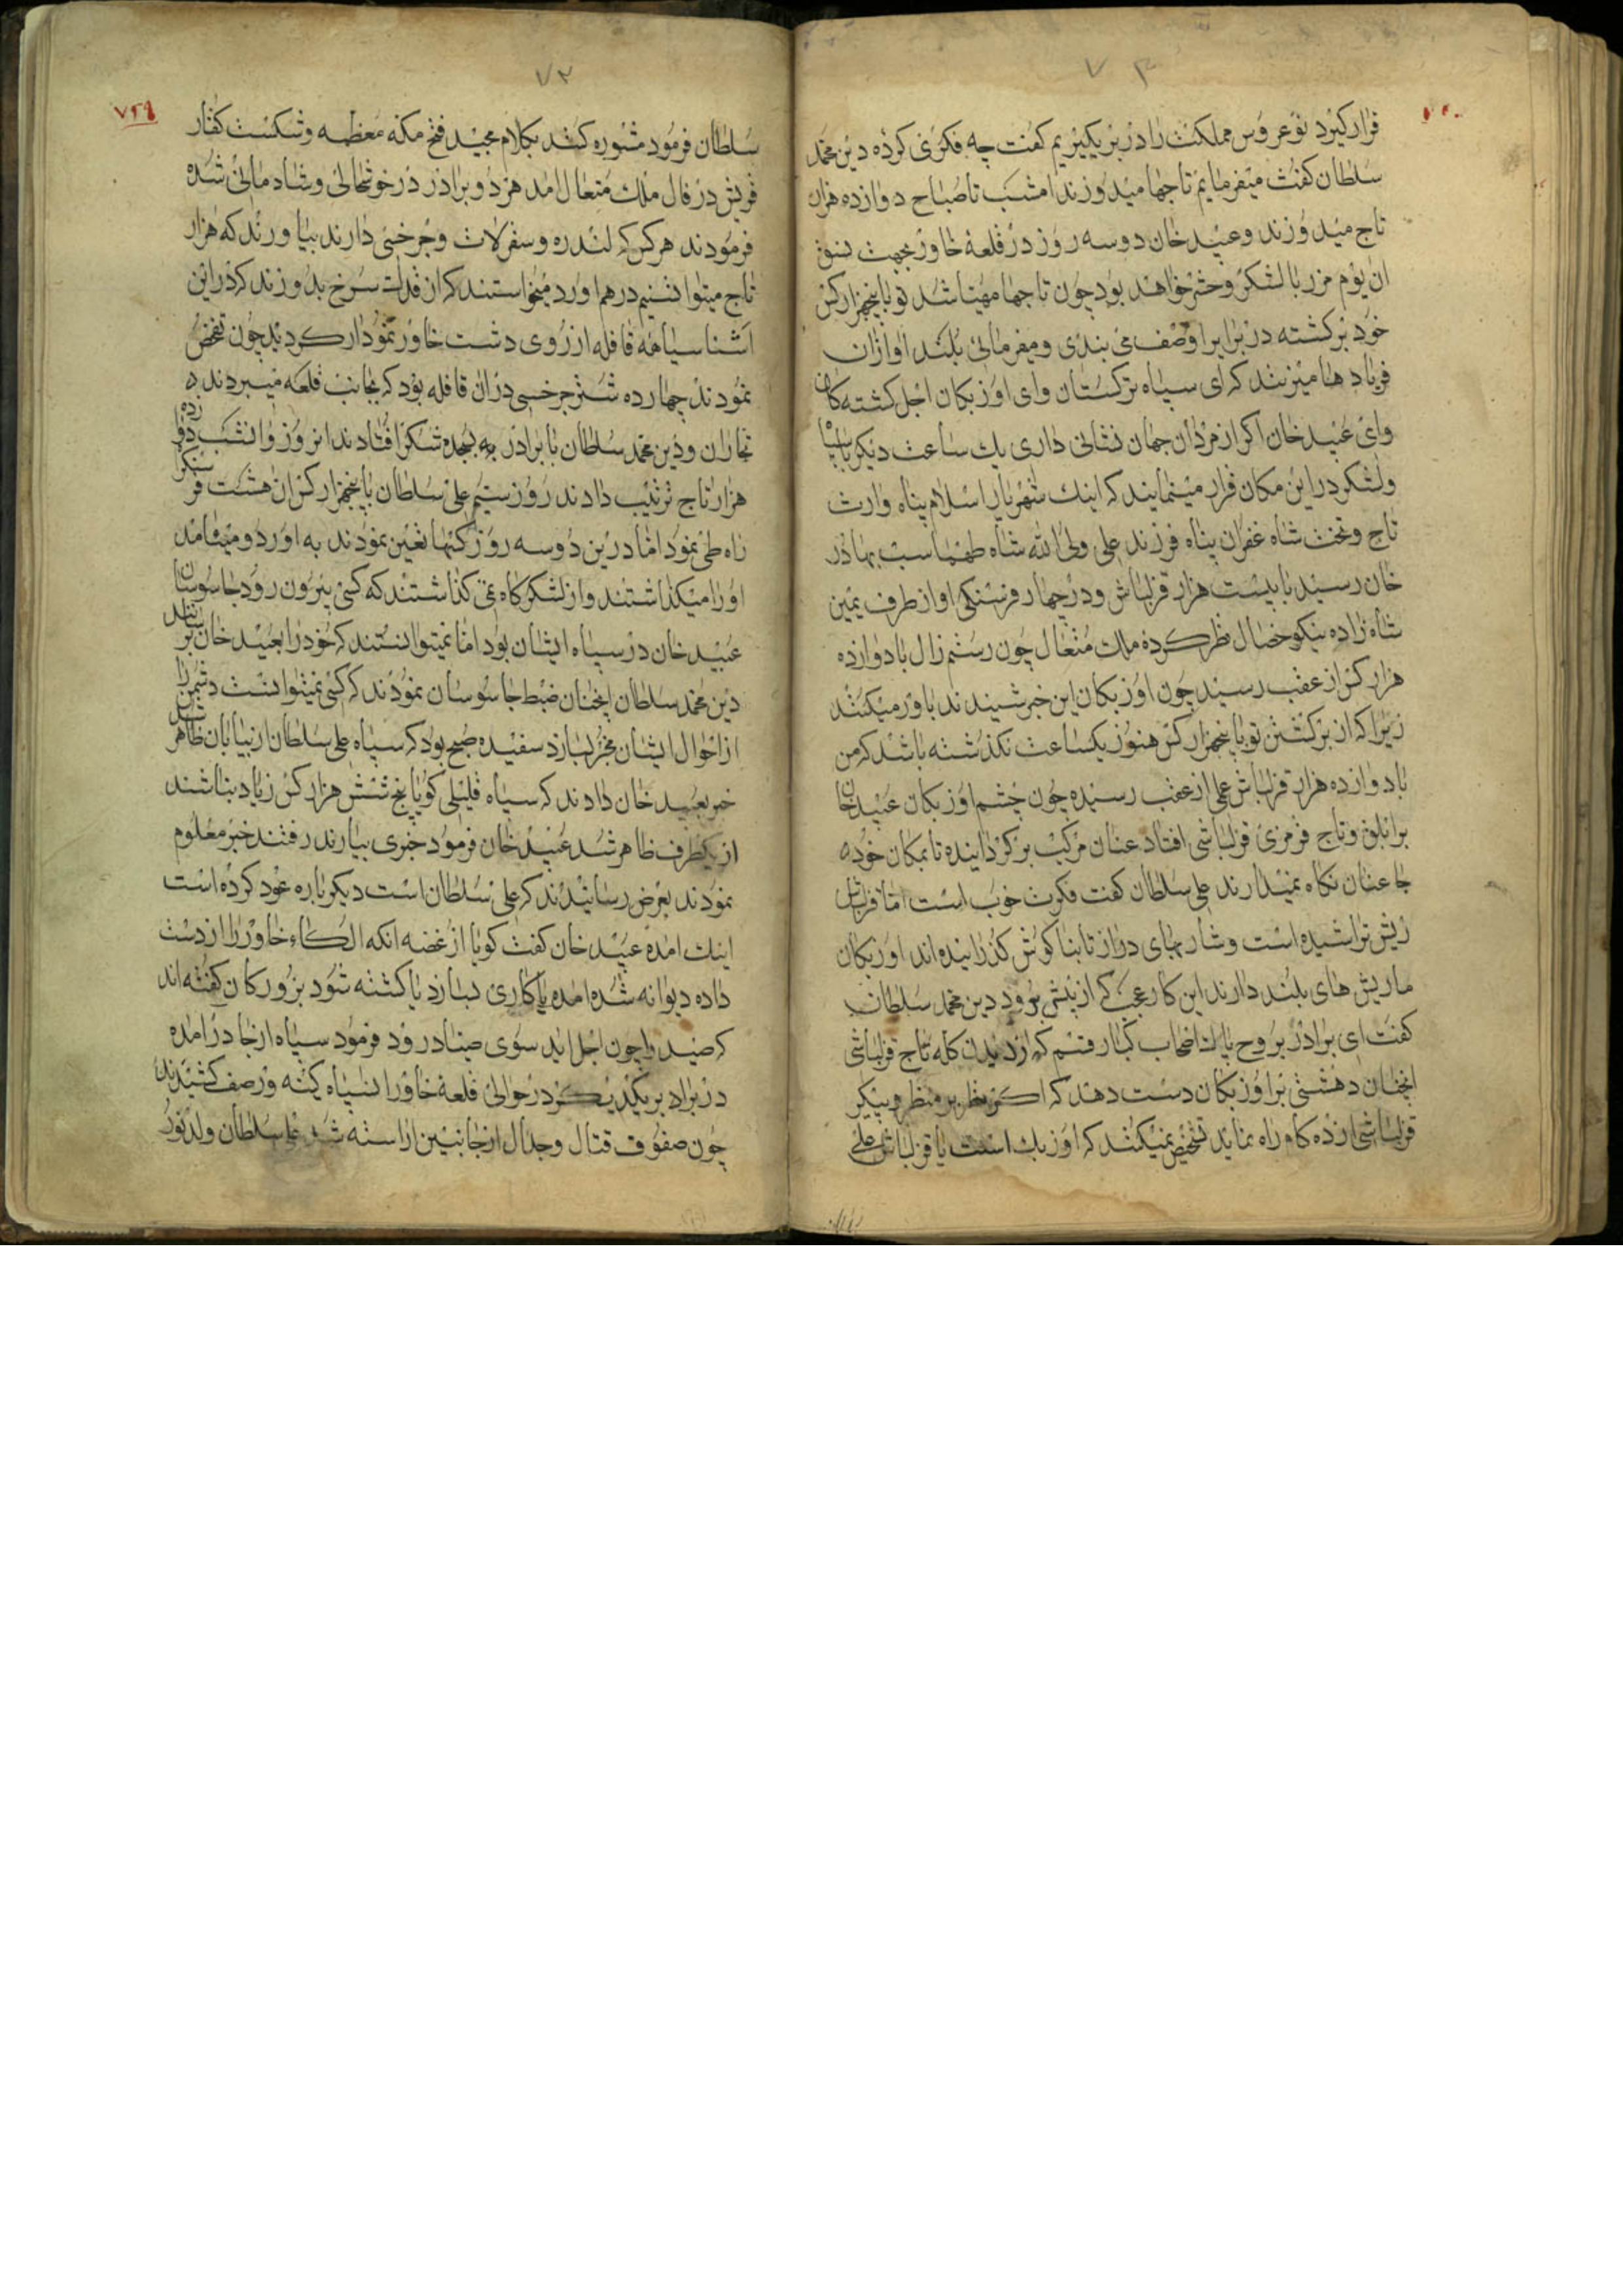 ۷۳
قرار کیرد نوعروس مملکت را در بر بکیریم کفت چه فکری کرده دین محمد
سلطان کفت میفرمایم تاجها میدوزند امشب تا صباح دوازده هزار
تاج میدوزند و عبید خان دوسه روز در قلعهٔ خاور بجهت نسق
ان بوم مرز با لشکر و حشم خواهند بود چون تاجها مهیا شد تو با پنجهزار کس
خود برکشته در برابر او صف می بندی و میفرمائی بلند اوازان
فریادها میزنند که ای سپاه ترکستان و ای اوزبکان اجل کشته کان
وای عبید خان اکر از مردان جهان نشانی داری یك ساعت دیکر با سپاه
و لشکر در این مکان قرار مینمایند که اینك شهریار اسلام پناه وارث
تاج و تخت شاه غفران پناه فرزند علی ولی الله شاه طهماسب بهادر
خان رسید با بیست هزار قزلباش و در چهار فرسنکی او از طرف یمین
شاه زاده نیکو خصال نظر کرده ملك متعال چون رستم زال با دوازده
هزار کس از عقب رسید چون اوزبکان این خبر شنیدند باور میکنند
زیرا که از برکشتن تو با پنجهزار کس هنوز یکساعت نکذشته باشد که من
با دوازده هزار قزلباش علی از عقب رسیده چون چشم اوزبکان عبید خان
بر ابلق و تاج قرمزی قزلباشی افتاد عنان مرکب برکردانیده تا بمکان خود هیچ
جا عنان نکاه نمیدارند علی سلطان کفت فکرت خوب است اما قزلباش
ریش تراشیده است و شاربهای دراز تا بنا کوش کذرانیده اند اوزبکان
ما ریش های بلند دارند این کار عجب که از پیش برود دین محمد سلطان
کفت ای برادر بروح پاك اصحاب کبار قسم که از دیدن کله تاج قزلباشی
انچنان دهشتی بر اوزبکان دست دهد که اکر نظر بر منظر و پیکر
قزلباشی از ده کاو راه نماید تشخیص نمیکنند که اوزبك است یا قزلباش علی
۷۲
۷۲۹
سلطان فرمود مشوره کنند بکلام مجید فتح مکه معظمه و شکست کفار
قریش در فال ملك متعال امد هر دو برادر در خوشحالی و شادمانی شده
فرمودند هر کس که لندره و سقرلات و جرخی دارند بیاورند که هزار
تاج میتوانستیم درهم اورد میخواستند که از قدك سرخ بدوزند که در این
اشنا سیاهه قافله از روی دشت خاور نمودار کردید چون تفحص
نمودند چهارده شتر جرخی در ان قافله بود که بجانب قلعه میبردند به
تجاران و دین محمد سلطان با برادر به سجده شکر افتادند انروز و انشب دوازده
هزار تاج ترتیب دادند روز سیم علی سلطان با پنجهزار کس ان هشت فرسنکرا
راه طی نمود اما درین دوسه روز کسها تعین نمودند به اوردو میفامد
او را میکذاشتند و از لشکرکاه نمی کذاشتند که کسی بیرون رود جاسوسان
عبید خان در سپاه ایشان بود اما نمیتوانستند که خود را بعبید خان برسانند
دین محمد سلطان انچنان ضبط جاسوسان نمودند که کسی نمیتوانست دشمن را
از احوال ایشان مخبر بسازد سفیده صبح بود که سپاه علی سلطان از بیابان ظاهر شد
خبر بعبید خان دادند که سپاه قلیلی کویا پنج شش هزار کس زیاد نباشند
از یکطرف ظاهر شد عبید خان فرمود خبری بیارند رفتند خبر معلوم
نمودند بعرض رسانیدند که علی سلطان است دیکرباره عود کرده است
اینك امده عبید خان کفت کویا از غصه انکه الکاء خاور را از دست
داده دیوانه شده امده یا کاری بسازد یا کشته شود بزورکان کفته اند
که صید را چون اجل اید سوی صیاد رود فرمود سپاه از جا درامده
در برابر یکدیکر در حوالی قلعهٔ خاوران سپاه کینه ور صف کشیدند
چون صفوف قتال و جدال از جانبین اراسته شد علی سلطان ولد نور